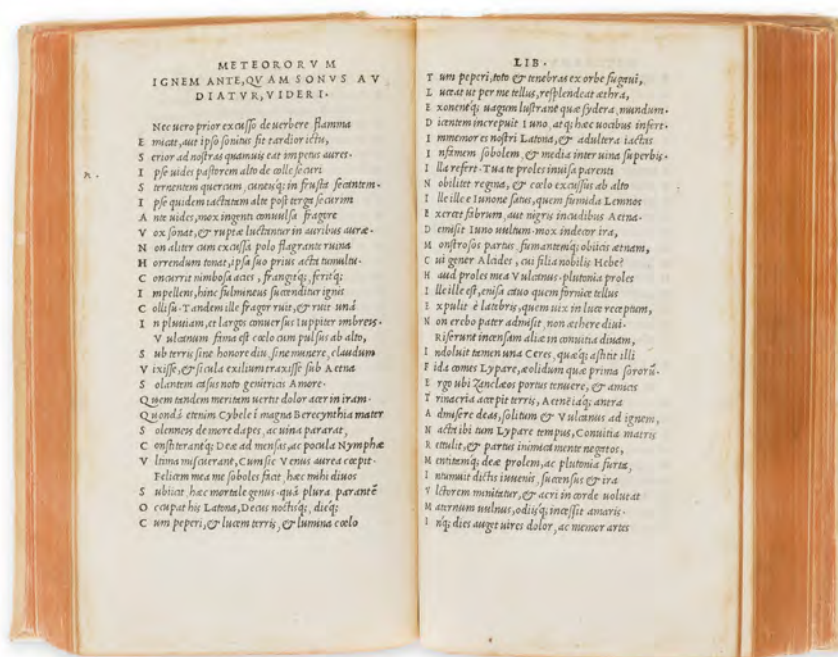 METEORORVM
IGNEM ANTE, QVAM SONVS AV
DIATVR, VIDERI.
Nec uero prior excusso de uerbere flamma
E micat, aut ipso sonitus fit tardior ictu,
S erior ad nostras quamuis eat impetus aures.
I pse uides pastorem alto de colle securi
S ternentem quercum, cuneisq; in frusta secantem.
I pse quidem iactatam alte post terga securim
A nte uides, mox ingenti conuulsa fragore
V ox sonat, & ruptæ luctantur in auribus auræ.
N on aliter cum excussa polo flagrante ruina
H orrendum tonat, ipsa suo prius acta tumultu.
C oncurrit nimbosa acies, frangitq; feritq;
I mpellens, hinc fulmineus succenditur ignis
C ollisu. Tandem ille fragor ruit, & ruit unà
I n pluuiam, et largos conuersus Iuppiter imbreis.
V ulcanum fama est cœlo cum pulsus ab alto,
S ub terris sine honore diu, sine munere, claudum
V ixisse, & sicula exilium traxisse sub Aetna
S olantem casus noto genitricis Amore.
Quem tandem meritam uertit dolor acer in iram.
Quondā etenim Cybele i magna Berecynthia mater
S olenneis de more dapes, ac uina pararat,
C onstiterantq; Deæ ad mensas, ac pocula Nymphæ
V ltima miscuerant, Cum sic Venus aurea cœpit.
Felicem me mea soboles facit, hæc mihi diuos
S ubiicit, hæc mortale genus. quā plura parantē
O ccupat his Latona, Decus noctisq; dieq;
C um peperi, & lucem terris, & lumina cœlo
LIB.
T um peperi, toto & tenebras ex orbe fugaui,
L uceat ut per me tellus, resplendeat æthra,
E xonentq; uagum lustrant quæ sydera mundum.
D icentem increpuit Iuno, atq; hæc uocibus infert.
I mmemores nostri Latona, & adultera iactas
I nfamem sobolem, & media inter uina superbis.
I lla refert. Tua te proles inuisa parenti
N obilitet regina, & cœlo excussus ab alto
I lle ille e Iunone satus, quem fumida Lemnos
E xercet fabrum, aut nigris incudibus Aetna.
D emisit Iuno uultum. mox indecor ira,
M onstrosos partus, fumantemq; obiicis ætnam,
C ui gener Alcides, cui filia nobilis Hebe?
H aud proles mea Vulcanus. plutonia proles
I lle ille est, enisa cauo quem fornice tellus
E xpulit è latebris, quem uix in luce receptum,
N on erebo pater admisit, non æthere diui.
Riserunt incensam aliæ in conuitia diuam,
I ndoluit tamen una Ceres, quæq; astitit illi
F ida comes Lypare, æolidum quæ prima sororū.
E rgo ubi Zanclæos portus tenuere, & amicis
T rinacria accepit terris, Aetnęiaq; antra
A dmisere deas, solitum & Vulcanus ad ignem,
N acta ibi tum Lypare tempus, Conuitia matris
R ettulit, & partus inimica mente negatos,
M entitamq; deæ prolem, ac plutonia furta,
I ntumuit dictis iuuenis, succensus & ira
V ltorem minitatur, & acri in corde uolutat
M aternum uulnus, odiisq; incessit amaris.
I nq; dies auget uires dolor, ac memor artes